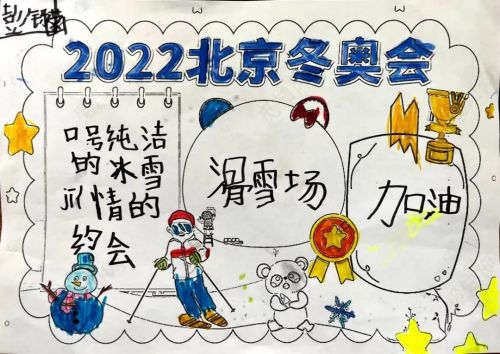 2022北京冬奥会
口号纯洁
的冰雪
ji情的
约会
滑雪场
加油